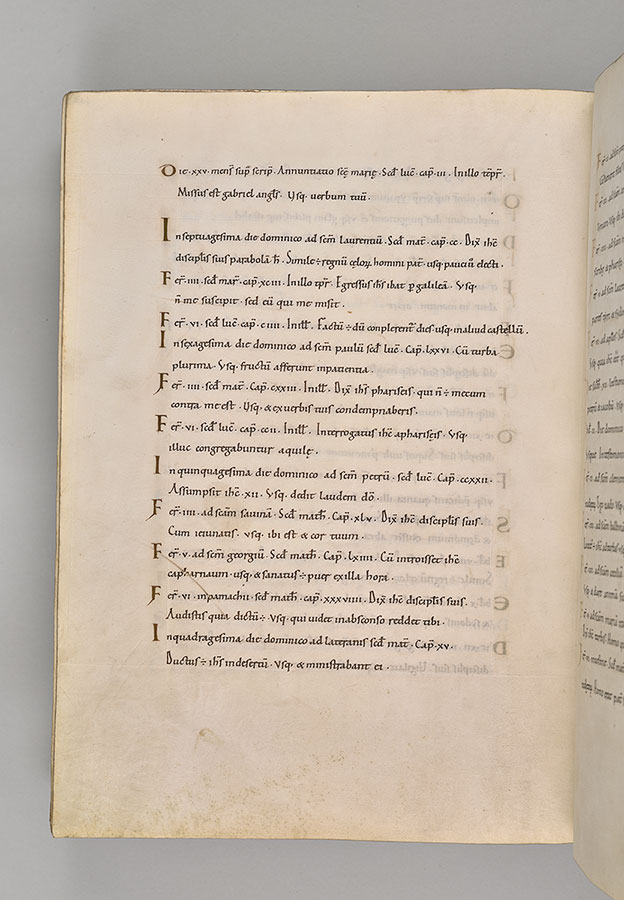 Die · xxv · mens̄ sup̄ scrip̄ · Annuntiatio scē marie · Scđ luc̄ · cap̄ · iii · Inillo tp̄r ·
Missus est gabriel angl̄s · Usq· verbum tuū ·
Inseptuagesima die dominico ad scm̄ laurentiū · Scđ mat̄ · cap̄ · cc · Dix̄ ihc̄
discipl̄is suis parabolā h̄ · Simile ÷ regnū cęloꝝ homini pat̄ · usq· pauci ū electi ·
Fer̄ · iiii · scđ mar̄ · cap̄ · xciii · Inillo tp̄r · Egressus ih̄s ibat p̄ galileā · Usq·
n̄ me suscipit · sed eū qui me misit ·
Fer̄ · vi · scđ luc̄ · cap̄ · c iiii · In ill̄ · Factū ÷ dū conplerent̄ dies usq· inaliud castellū ·
Insexagesima die dominico ad scm̄ paulū scđ luc̄ · Cap̄ · lxxvi · Cū turba
plurima · Usq· fructū afferunt inpatientia ·
Fer̄ · iiii · scđ mat̄ · Cap̄ · cxxiii · In ill̄ · Dix̄ ih̄s phariseis · qui n̄ ÷ mecum
contra me est · Usq· & ex verbis tuis condempnaberis ·
Fer̄ · vi · scđ luc̄ · cap̄ · cc ii · In ill̄ · Interrogatus ihc̄ apharisęis · Usq·
illuc congregabuntur aquilę ·
Inquinquagesima die dominico ad scm̄ petrū · scđ luc̄ · Cap̄ · ccxxii ·
Assumpsit ihc̄ · xii · Usq· dedit laudem dō ·
Fer̄ · iiii · ad scam̄ sauinā · Scđ math̄ · Cap̄ · xlv · Dix̄ ihc̄ discipl̄is suis ·
Cum ieiunatis · usq· ibi est & cor tuum ·
Fer̄ · v · ad scm̄ georgiū · Scđ math̄ · Cap̄ · lxiiii · Cū introisset ihc̄
capharnaum · usq· & sanatus ÷ puer exilla hora ·
Fer̄ · vi · inpamachii · scđ math̄ · cap̄ · xxxviiii · Dix̄ ihc̄ discipl̄is suis ·
Audistis quia dictū ÷ · Usq· qui uidet inabsconso reddet tibi ·
Inquadragesima die dominico ad lateranis scđ mat̄ · Cap̄ · xv ·
Ductus ÷ ih̄s indesertū · Usq· & ministrabant ei ·